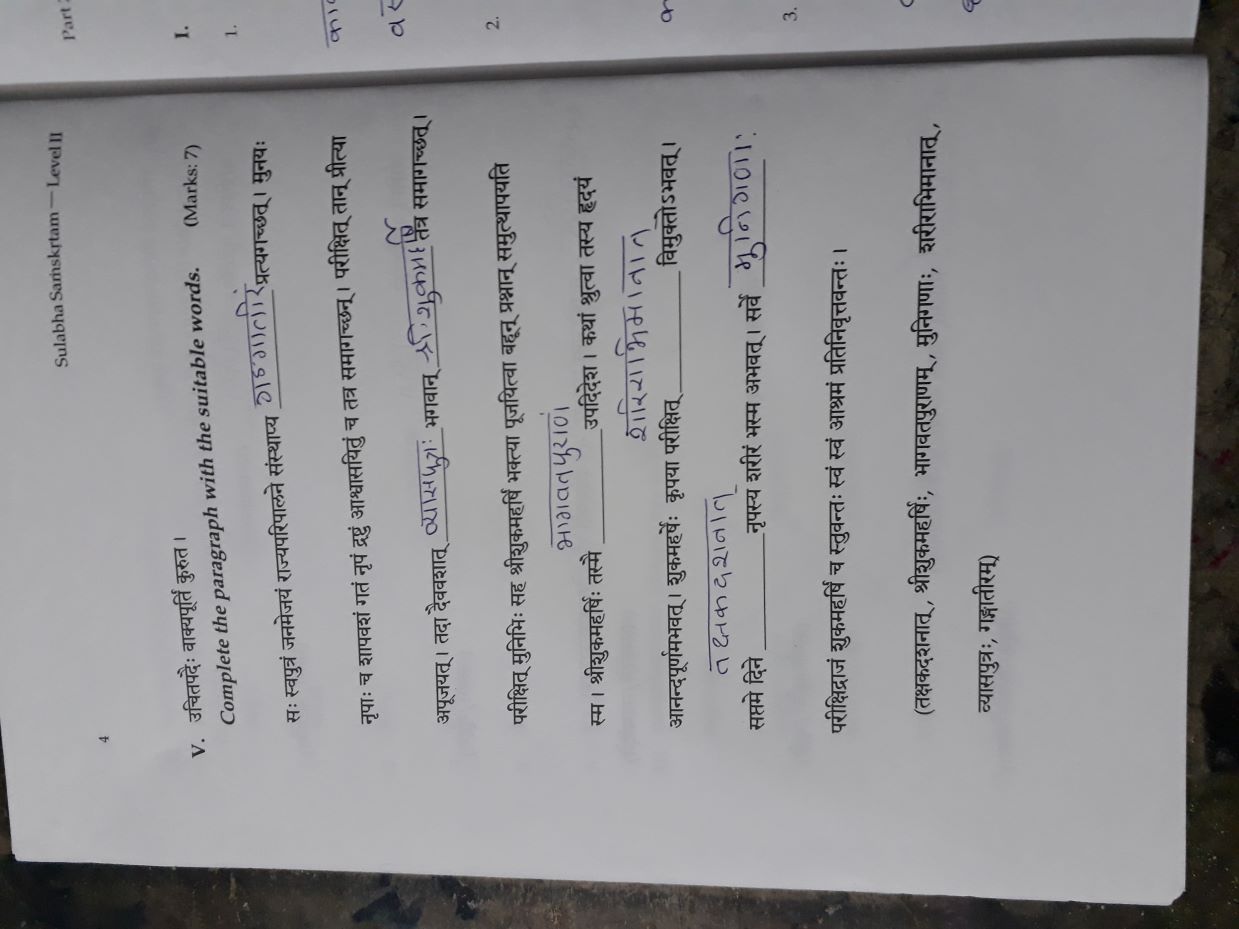 Sulabha Saṁskṛtam — Level II
4
V. उचितपदैः वाक्यपूर्तिं कुरुत।
Complete the paragraph with the suitable words. (Marks: 7)
सः स्वपुत्रं जनमेजयं राज्यपरिपालने संस्थाप्य गङगातीरं प्रत्यगच्छत्। मुनयः
नृपाः च शापवशं गतं नृपं द्रष्टुं आश्वासयितुं च तत्र समागच्छन्। परीक्षित् तान् प्रीत्या
अपूजयत्। तदा दैववशात् व्यासपुत्रः भगवान् श्रीःशुकमहर्षि तत्र समागच्छत्।
परीक्षित् मुनिभिः सह श्रीशुकमहर्षिं भक्त्या पूजयित्वा बहून् प्रश्नान् समुत्थापयति
भागवतपुराणं
स्म। श्रीशुकमहर्षिः तस्मै __________ उपदिदेश। कथां श्रुत्वा तस्य हृदयं
शरिराभिमानात्
आनन्दपूर्णमभवत्। शुकमहर्षेः कृपया परीक्षित् __________ विमुक्तोऽभवत्।
तक्षकदशनात्
सप्तमे दिने __________ नृपस्य शरीरं भस्म अभवत्। सर्वे मुनिगणाः
परीक्षिद्राजं शुकमहर्षिं च स्तुवन्तः स्वं स्वं आश्रमं प्रतिनिवृत्तवन्तः।
(तक्षकदशनात्, श्रीशुकमहर्षिः, भागवतपुराणम्, मुनिगणाः, शरीराभिमानात्,
व्यासपुत्रः, गङ्गातीरम्)
Part
I.
1.
2.
3.